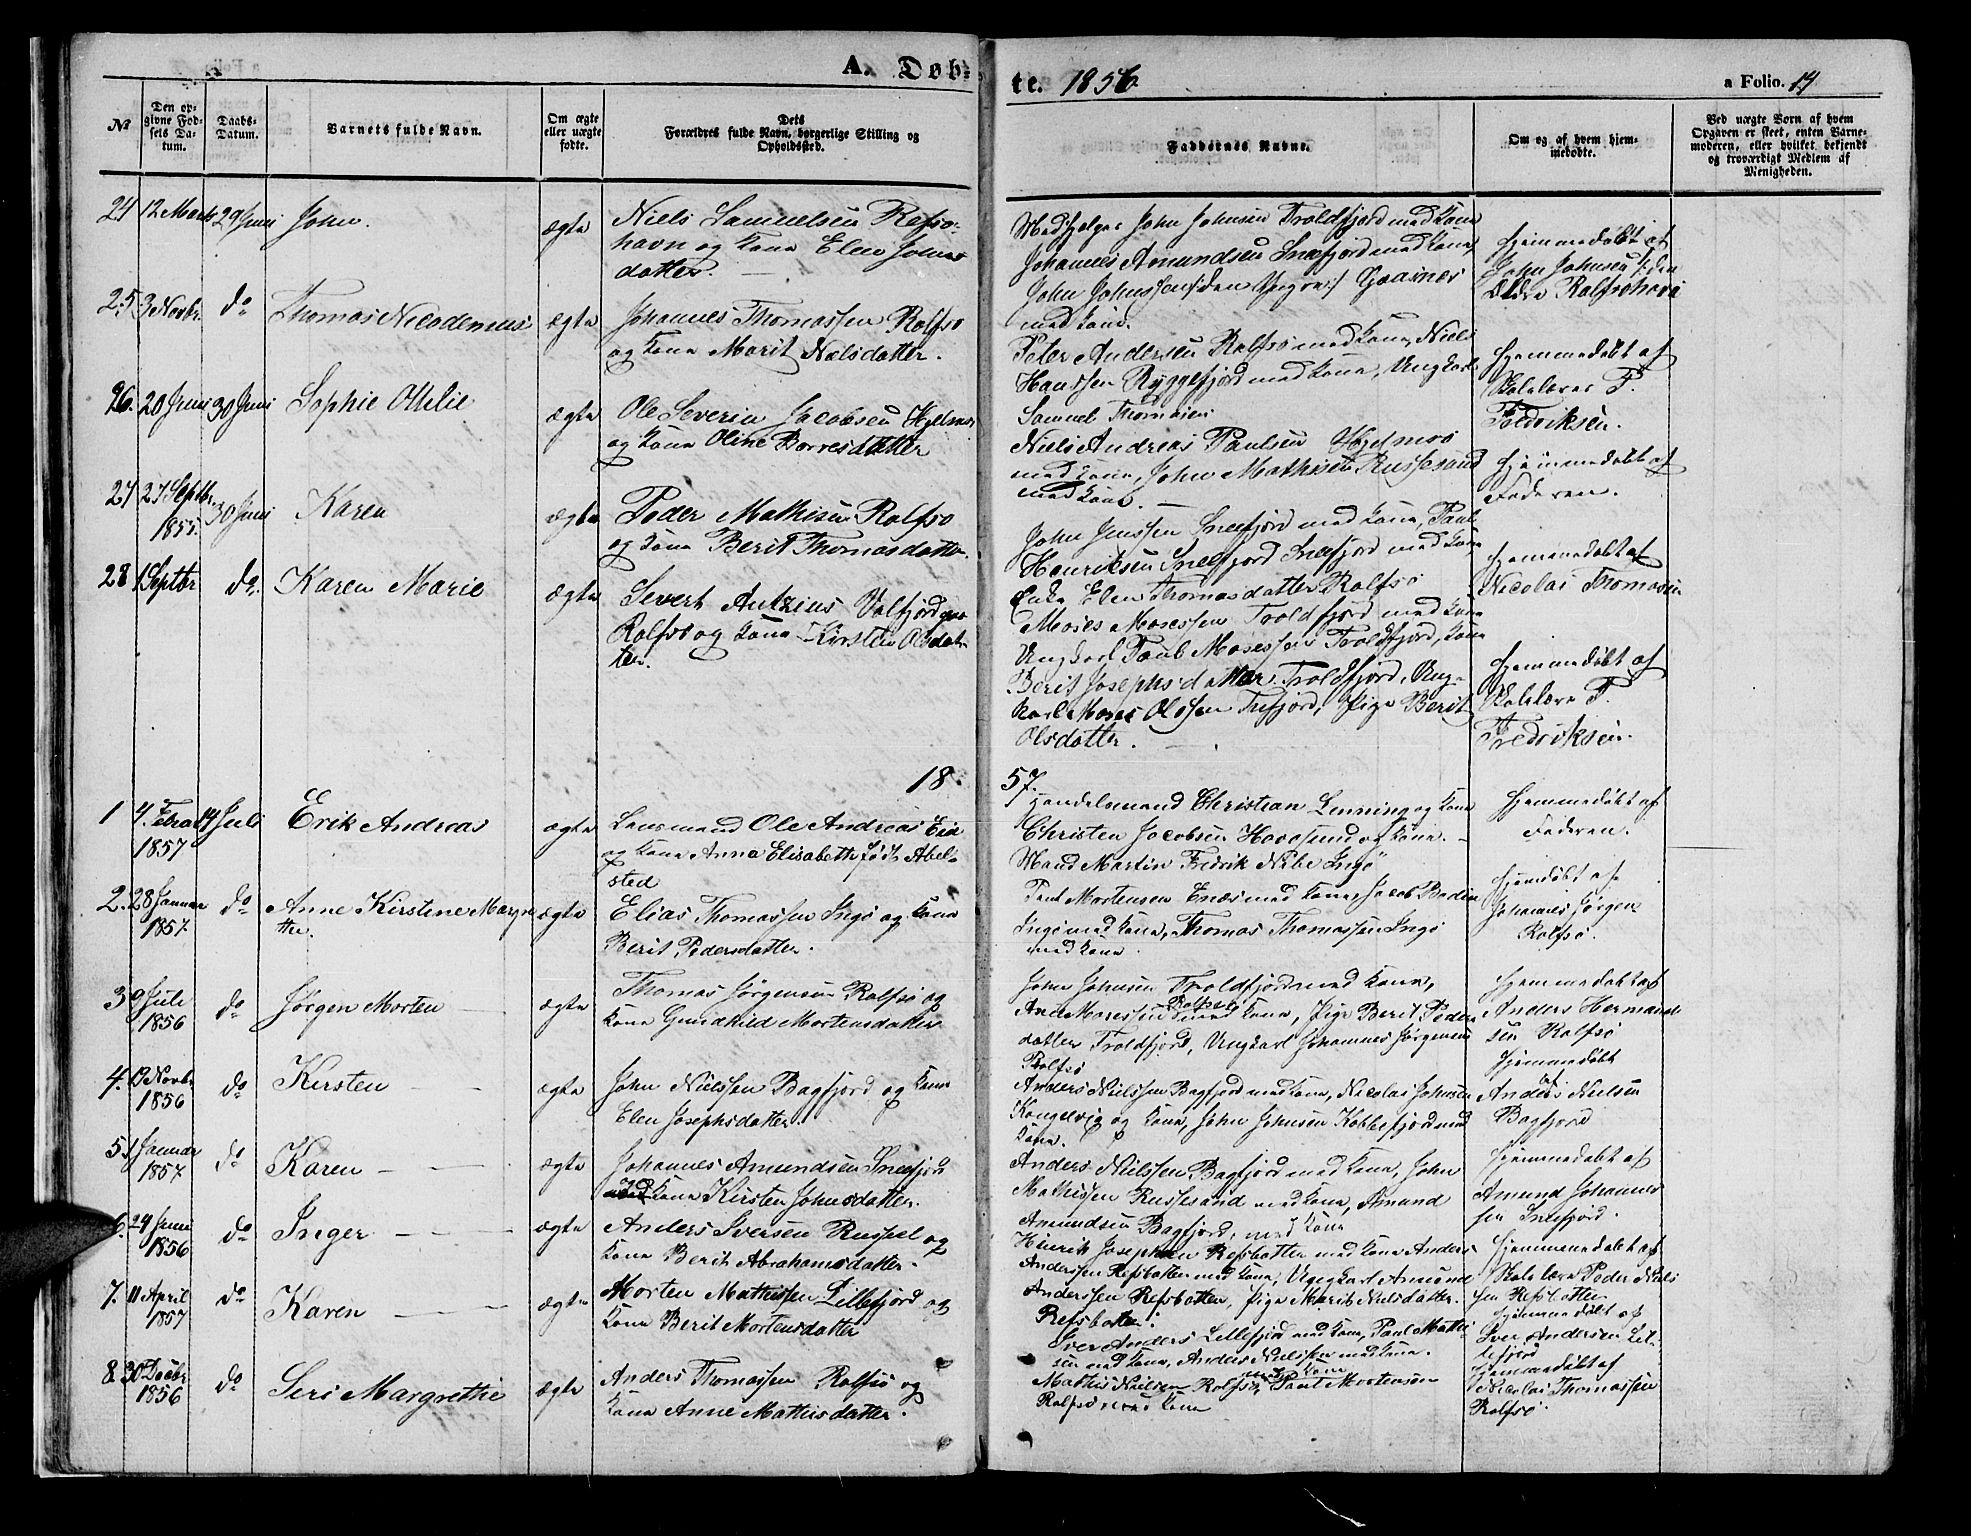 A. Døb-
te. 1856
a Folio. 14
№
Den op-
givne Fød-
sels Da-
tum.
Daabs-
Datum.
Barnets fulde Navn.
Om ægte
eller uægte
fødte.
Dets
Forældres fulde Navn, borgerlige Stilling og
Opholdssted.
Faddernes Navne.
Om og af hvem hjem-
medøbte.
Ved uægte Børn af hvem
Opgaven er skeet, enten Barne-
moderen, eller hvilket bekjendt
og troværdigt Medlem af
Menigheden.
24 12 Marts 29 Juni John. ægte
Niels Samuelsen Refsø-
havn og Kone Elen Johns
datter.
Johannes Amundsen Sneefjord med Kone,
med Kone.
Hjemmedøbt af
John Johnsen
25 3 Novbr. do Thomas Nicodemus ægte
Johannes Thomassen Rolfsø
og Kone Marit Nielsdatter.
Peter Andersen Rolfsø med Kone, Niels
Hanssen Ryggefjord med Kone, Ungkarl
Samuel
Hjemmedøbt af
Skolelærer F.
Fredriksen.
26. 20 Juni 30 Juni Sophie Ottilie ægte
Ole Severin Jacobsen Hjelmsø
og Kone Oline Børresdatter
Niels Andreas Paulsen Hjelmsø
med Kone, John Mathisen Russesund
med Kone.
Hjemmedøbt af
Faderen.
27 27 Septbr. 1855. 30 Juni Karen ægte
Peder Mathisen Rolfsø
og Kone Berit Thomasdatter.
John Jenssen Sneefjord med Kone, Paul
Henriksen Sneefjord Sneefjord med Kone
Enke Elen Thomasdatter Rolfsø
Hjemmedøbt af
Nicolai Thomassen
28 1 Septbr do. Karen Marie ægte
Severt Antzius
Rolfsø og Kone Kirsten Olsdat-
ter.
Moses Mosessen Troldfjord med Kone
Ungkarl Paul Mosessen Troldfjord, Kone
Berit Josephsdatter, Troldfjord, Ung-
karl Moses Olsen Trefjord, Pige Berit
Olsdatter.
Hjemmedøbt af
Skolelære F.
Fredriksen.
18
57.
1 4. Febra 1857 14 Juli Erik Andreas ægte
Lensmand Ole Andreas
og Kone Anna Elisabeth født Abel-
sted
Handelsmand Christian Lenning og Kone
Christen Jacobsen Havøsund og Kone.
Mand Martin Fredrik Nibe Ingø
Hjemmedøbt af
Faderen.
2. 28 Januar 1857. do Anne Kirstine Margre
the. ægte
Elias Thomassen Ingø og Kone
Berit Pedersdatter.
Paul Mortensen
Ingø med Kone, Thomas Thomassen Ingø
med Kone
Hjemdøbt af
Johannes Jørgen.
Rolfsø.
3 9 Juli 1856 do Jørgen Morten ægte
Thomas Jørgensen Rolfsø og
Kone Gundhild Mortensdatter
John Johnsen Troldfjord med Kone,
Rolfsø
med Kone, Pige Berit Peder
datter Troldfjord, Ungkarl Johannes Jørgensen
Rolfsø
Hjemmedøbt af
Anders Hermand
sen Rolfsø
4. 13 Novbr. 1856 do Kirsten ægte
John Nielsen Bagfjord og Kone
Elen Josephsdatter.
Anders Nielssen Bagfjord med Kone, Nicolai Johnsen
Kongelvig og Kone, John Johnsen Kobbefjord med
Kone.
Hjemmedøbt
af
Anders Nielsen
Bagfjord
5. 1 Januar 1857 do Karen ægte
Johannes Amundsen Sneefjord
og Kone Kirsten Johnsdatter.
Anders Nielssen Bagfjord med Kone, John
Mathissen Russesund med Kone, Amund
Amundsen Bagfjord, med Kone
Hjemmedøbt af
Amund Johannes
sen Sneefjord.
6. 24 Juni 1856 do Inger ægte
Anders Iversen Russel og
Kone Berit Abrahamsdatter.
Hinrik Josephsen Refsbotten med Kone Anders
Anderssen Refsbotten med Kone, Ungkarl Amund
Anderssen Refsbotten, Pige Marit Nielsdatter.
Refsbotten.
Hjemmedøbt af
Skolelære Peder Niels
sen Refsbotten
7. 11 April 1857 do Karen ægte
Morten Mathissen Lillefjord og
Kone Berit Mortensdatter
Iver Anders Lillefjord med Kone, Paul Mathi
sen med Kone, Anders Nielssen med Kone.
Hjemmedøbt af
Iver Andersen Lil-
lefjord
8 30 Decbr 1856 do Seri Margrethe ægte
Anders Thomassen Rolfsø og
Kone Anne Mathisdatter.
med Kone
Mathis Nielsen Rolfsø, Paul Mortensen
Rolfsø med Kone
Hjemmedøbt af
Nicolai Thomassen
Rolfsø.